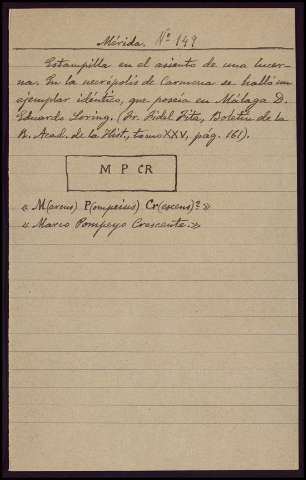 Mérida. Nº 149
Estampilla en el asiento de una lucer-
na. En la necrópolis de Carmona se halló un
ejemplar idéntico, que poseía en Málaga D.
Eduardo Loring. (Fr. Fidel Fita, Boletín de la
R. Acad. de la Hist, tomo XXV, pág. 161).
M P CR
« M(arcus) P(ompeius) Cr(escens)? »
« Marco Pompeyo Crescente. »